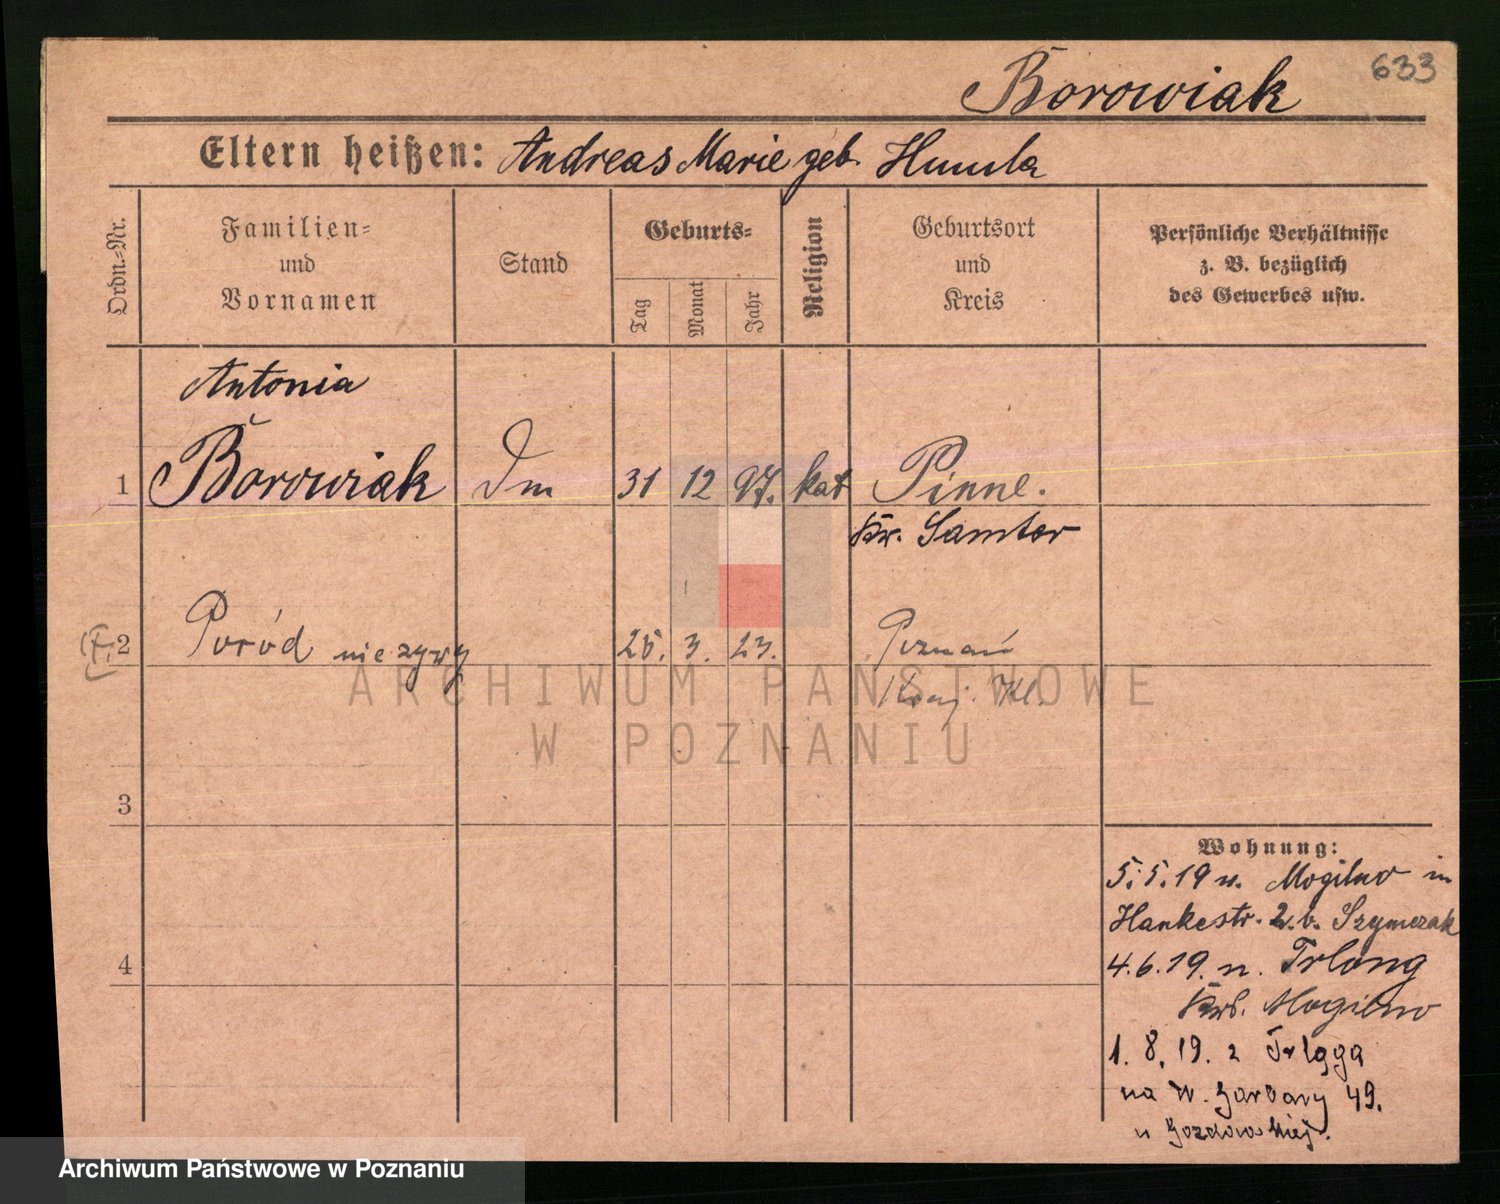 633
Borowiak
Eltern heißen: Andreas Marie geb. Humla
Ordn.-Nr.
Familien-
und
Vornamen
Stand
Geburts-
Tag
Monat
Jahr
Religion
Geburtsort
und
Kreis
Persönliche Verhältnisse
z. B. bezüglich
des Gewerbes usw.
Antonia
1 Borowiak Dm 31 12 97. kat Pinne.
Kr. Samter
2 Poród nieżywy 25. 3. 23. Poznań
Kl.
3
4
Wohnung:
5.5.19 n. Mogilno in
Hankestr. 2. b. Szymczak
4.6.19. n. Trlong
Krb. Mogilno
1. 8. 19. z Trląga
na W. Garbary 49.
u Gozdowskiej.
ARCHIWUM PAŃSTWOWE
W POZNANIU
Archiwum Państwowe w Poznaniu